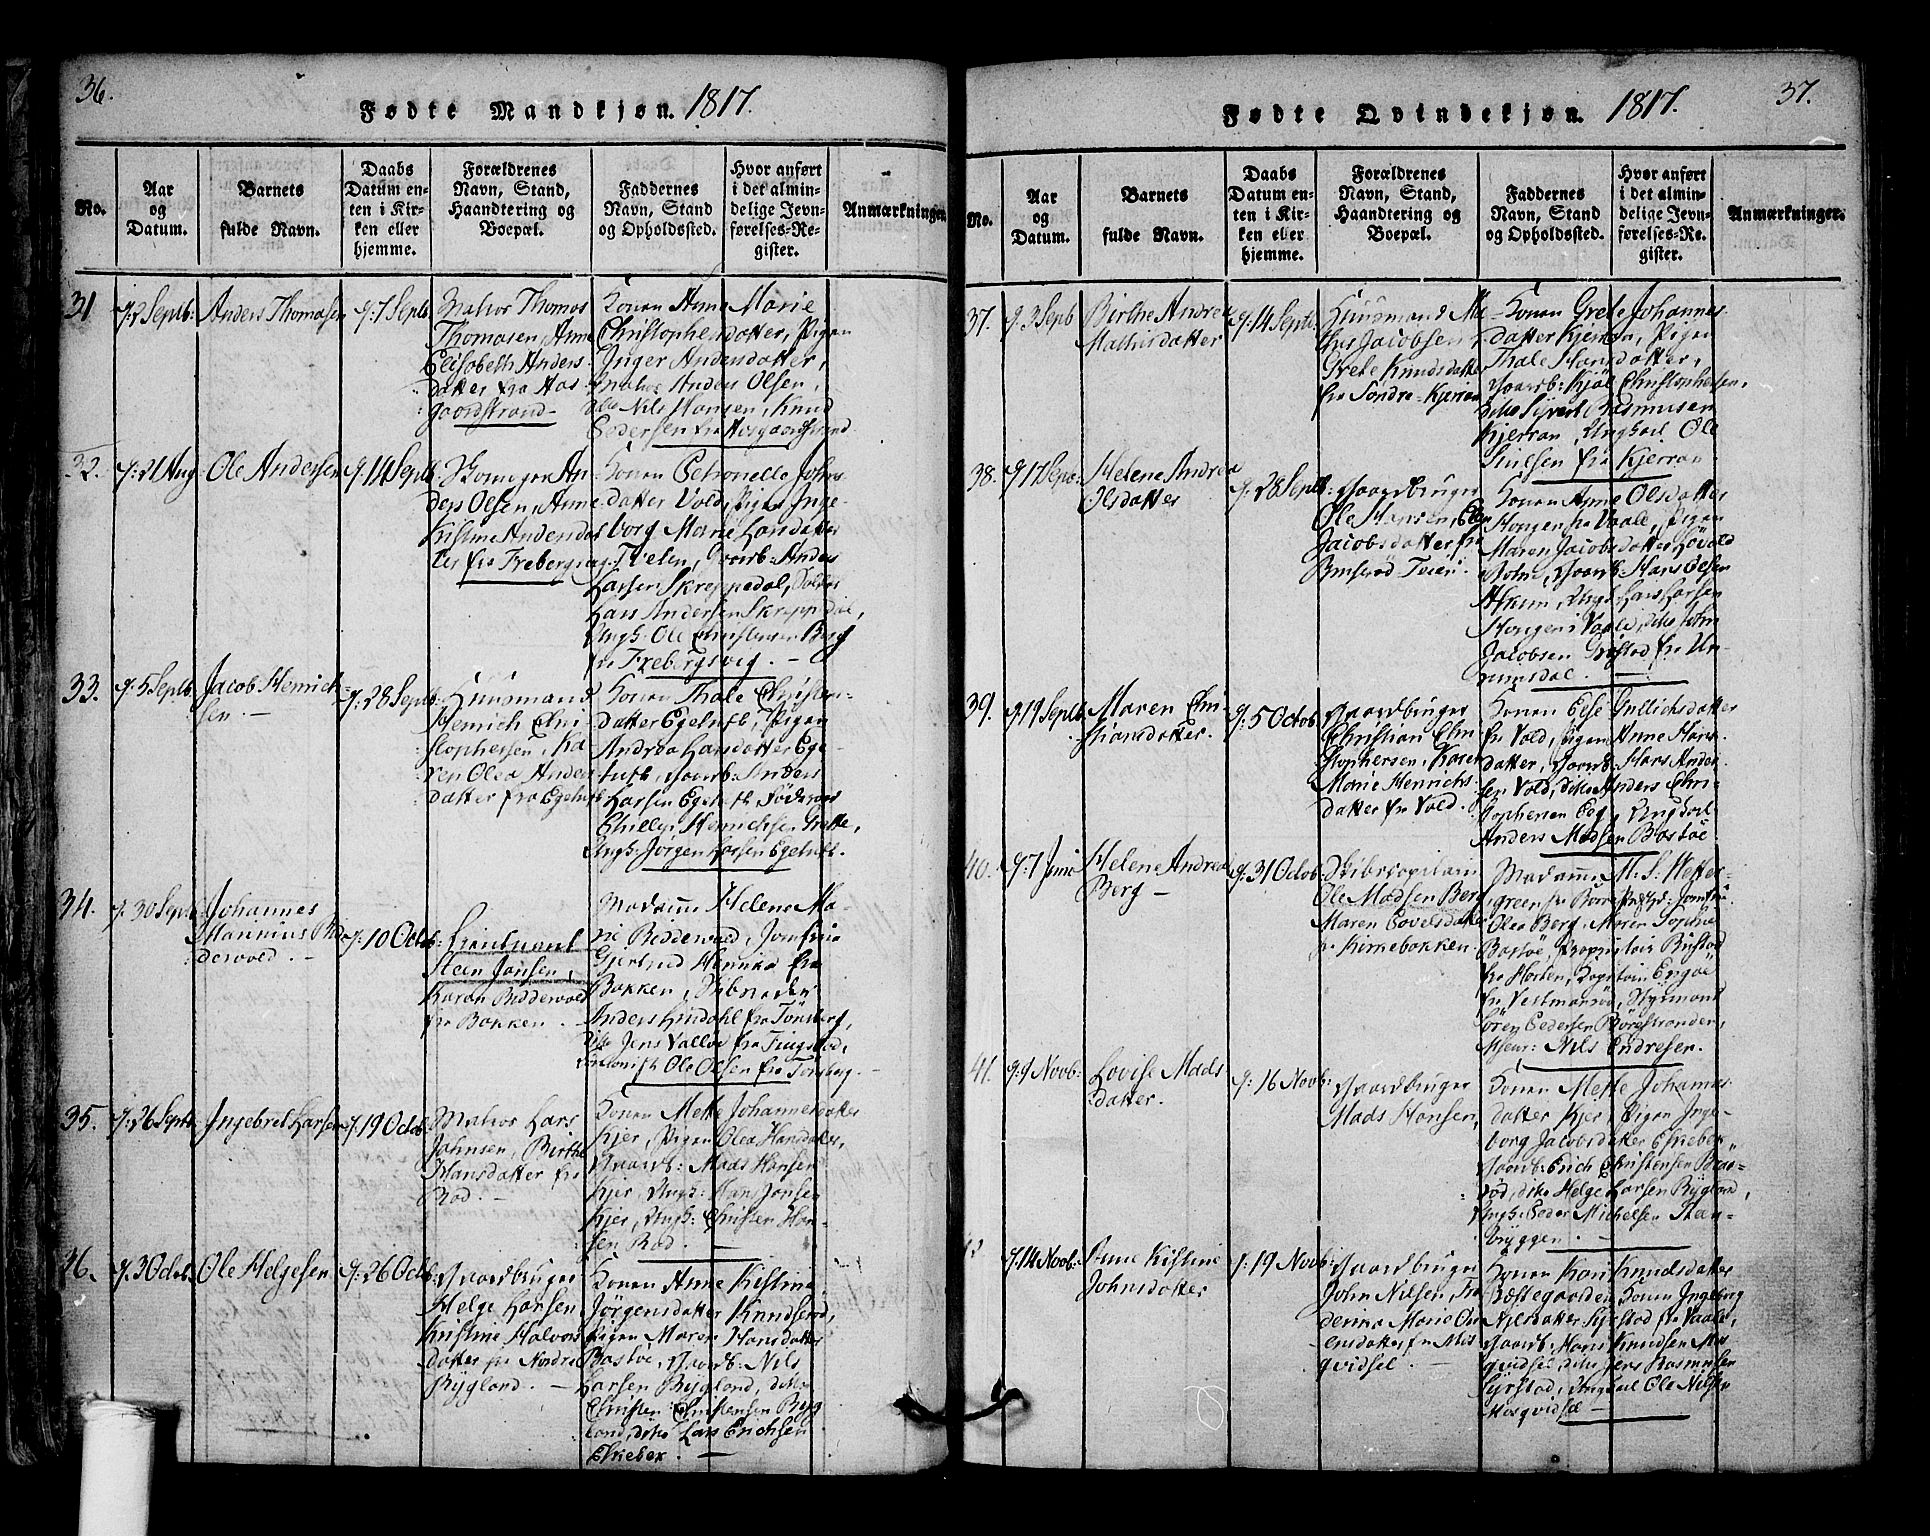 36.
Fødte Mandkjøn. 1817.
No.
Aar
og
Datum.
Barnets
fulde Navn.
Daabs
Datum en-
ten i Kir-
ken eller
hjemme.
Forældrenes
Navn, Stand,
Haandtering og
Boepæl.
Faddernes
Navn, Stand
og Opholdssted.
Hvor anført
i det almin-
delige Jevn-
førelses-Re-
gister.
Anmærkninger.
31
Anders Thomasen
Matros Thomas
Thomasen, Anne
Elisabeth Anders
datter fra Aas
gaardstrand
Konen Anne Marie
Christophersdatter, Pigen
Inger Andersdatter,
Matros Anders Olsen,
Nils Hansen, Knud
Pedersen fra Aasgaardstrand
32.
d: 21 Aug
Ole Andersen
d: 14 Septb:
ders Olsen, Anne
Kistine Andersdat
ter fra Frebergsvig
Konen Petronelle Johns
datter Vold, Pigen Inge-
borg Marie Larsdatter
Tveten, Gaarb: Anders
Larsen Skreppedal, Soldat
Lars Andersen Skreppedal,
Ungk: Ole Christensen Berg
fra Frebergsvig. -
33.
d: 5 Septb:
Jacob Henrich-
sen. -
d: 28 Septb:
Huusmand
Henrich Chri
stophersen, Ka
ren Olea Anders
datter fra Egeluft
Konen Thale Christens
datter Egeluft, Pigen
Andrea Larsdatter Ege
luft, Gaarb: Anders
Larsen Egeluft
Henrichsen
Ungk: Jørgen Larsen Egeluft.
34.
d: 30 Septb:
Johannes
Mannius Bid
derwold. -
d: 10 Octob:
Lieutnant
Steen Jansen,
Karen Bidderwold
fra Bakken. -
Madame Helene Ma-
rie Bedderwold, Jomfrue
Gjertrud Henrika fra
Bakken,
Anders Lindahl fra Tønsberg,
dito Jens Valløe fra
Ole Olsen fra Tønsberg. -
35.
d: 26 Septb:
Ingebret Larsen
d: 19 Octob:
Matros Lars
Johnsen, Birthe
Hansdatter fra
Rød. -
Konen Mette Johannesdatter
Kjær, Pigen Olea Hansdatter,
Gaarb: Mads Hansen
Kjær, Ungk: Hans Jansen
Kjær, Ungk: Christen Han-
sen Rød. -
36.
d. 3 Octob:
Ole Helgesen
d: 26 Octob:
Gaardbruger
Helge Larsen,
Kristine Halvors
datter fra Nordre
Rygland. -
Konen Anne Kistine
Jørgensdatter Knudsrød,
Pigen Maren Hansdatter
Bastøe, Gaarb: Nils
Larsen Rygland, dito
Christen Christensen Ryg
land, dito Lars Erichsen
Eskebek. -
37.
Fødte Qvindekjøn. 1817.
No.
Aar
og
Datum.
Barnets
fulde Navn.
Daabs
Datum en-
ten i Kir-
ken eller
hjemme.
Forældrenes
Navn, Stand,
Haandtering og
Boepæl.
Faddernes
Navn, Stand
og Opholdssted.
Hvor anført
i det almin-
delige Jevn-
førelses-Re-
gister.
Anmærkninger.
37.
d. 3 Septb
Birthe Andrea
Mathisdatter
d: 14 Septb:
Huusmand Ma-
this Jacobsen,
Grete Knudsdatter
fra Søndre-Kjerran
Konen Grete Johannes
datter Kjerran, Pigen
Thale Hansdatter,
Gaarb: Kjøl Christophersen,
dito Syvert Rasmusen
Kjerran, Ungkarl Ole
fra Kjerran
38.
d 17 Septb:
Helene Andrea
Olsdatter
d: 28 Septb:
Gaardbruger
Ole Hansen, Elen
Jacobsdatter fra
Konen Anne Olsdatter
Hongen fra Vaale, Pigen
Maren Jacobsdatter
Gaarb: Hans Olsen
Askum, Ungk: Lars Larsen
Hongen i Vaale, dito John
Jacobsen fra Un-
rumsdal. -
39.
d 19 Septb:
Maren Chri-
stiansdatter.
d: 5 Octob:
Gaardbruger
Christian Chri
stophersen, Karen
Marie Henrichs
datter fra Vold.
Konen Else Gullichsdatter
fra Vold, Pigen Anne Hans
datter, Gaarb: Hans Ander
sen Vold, dito Anders Chri-
stophersen Eeg, Ungkarl
Anders Madsen Bastøe
40.
d: 7 Junii
Helene Andrea
Berg -
d: 31 Octob:
Skibscapitain
Ole Madsen Berg
Maren Povelsdatter
fr Kirkebakken.
Madame M. S. Wetter-
green fra Borre Præstgd: Jomfrue
Olea Berg, Maren Sophie
Bastøe, Proprietair Bustad
fra Horten, Capitain Engøe
fra Vestmanrød, Styrmand
Søren Pedersen Børrestranden,
Msieur: Nils Endresen.
41.
d: 9 Novb:
Lovise Mads
datter.
d: 16 Novb:
Gaardbruger
Mads Hansen,
Konen Mette Johannes
datter Kjær, Pigen Inge-
borg Jacobsdatter Eskebek
Gaarb: Erich Christensen Braa-
rød, dito Helge Larsen Rygland,
Ungk: Peder Michelsen Stan-
bryggen. -
d: 14 Novb:
Anne Kistine
Johnsdatter
d: 19 Novb:
Gaardbruger
John Nilsen, Fre
derikka Marie Chri
stensdatter fra Mos
qvidsel. -
Konen Kari Knudsdatter
Præstegaarden, Konen Ingeborg
Nilsdatter Syrstad fra Vaale,
Gaarb: Hans Knudsen Mos
qvidsel, dito Jens Rasmusen
Syrstad, Ungkarl Ole Nilsen
Mosqvidsel -